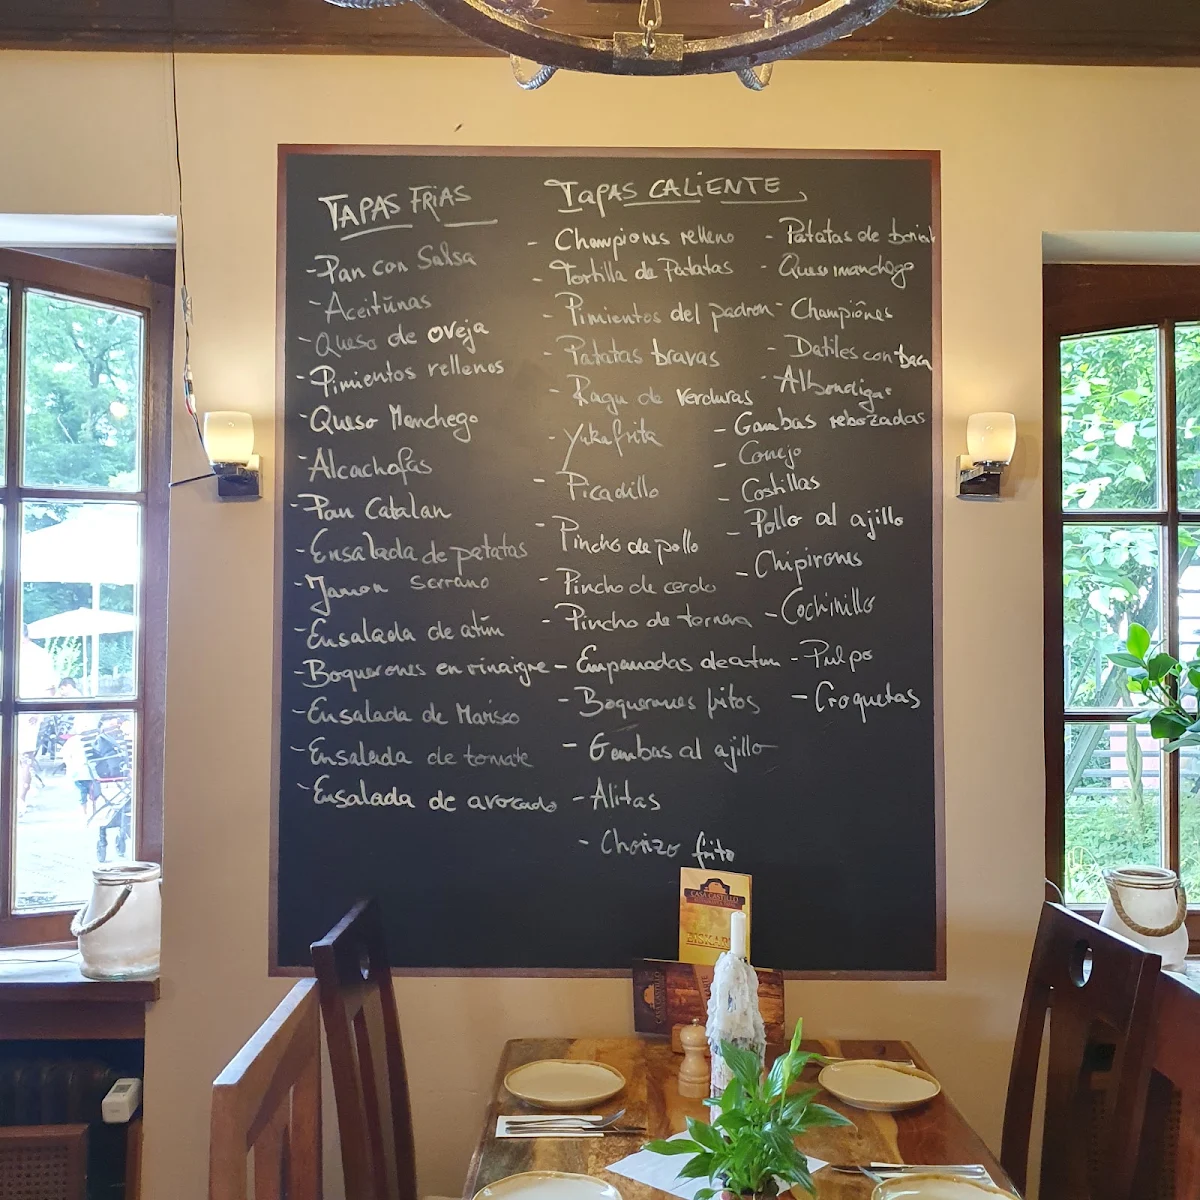 TAPAS FRiAS
-Pan con Salsa
-Aceitūnas
-Queso de oveja
-Pimientos rellenos
-Queso Manchego
-Alcachofas
-Pan Catalan
-Ensalada de patatas
-Jamon Serrano
-Ensalada de atún
-Boquerones en vinaigre
-Ensalada de Marisco
-Ensalada de tomate
-Ensalada de avocado
TapAS CALiENTE
- Championes relleno
- Tortilla de Patatas
- Pimientos del padron
- Patatas bravas
- Ragu de verduras
- Yuka frita
- Picadillo
- Pincho de pollo
- Pincho de cerdo
- Pincho de ternera
- Empanadas de atun
- Boquerones fritos
- Gambas al ajillo
- Alitas
- Chorizo frito
- Patatas de
- Queso manchego
- Champiōnes
- Datiles con baca
- Albondigas
- Gambas rebozadas
- Conejo
- Costillas
- Pollo al ajillo
- Chipirones
- Cochinillo
- Pulpo
- Croquetas
CASA CASTILLO
EISKARTE
CASA CASTILLO